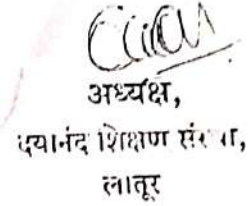 अध्यक्ष,
दयानंद शिक्षण संस्था,
लातूर